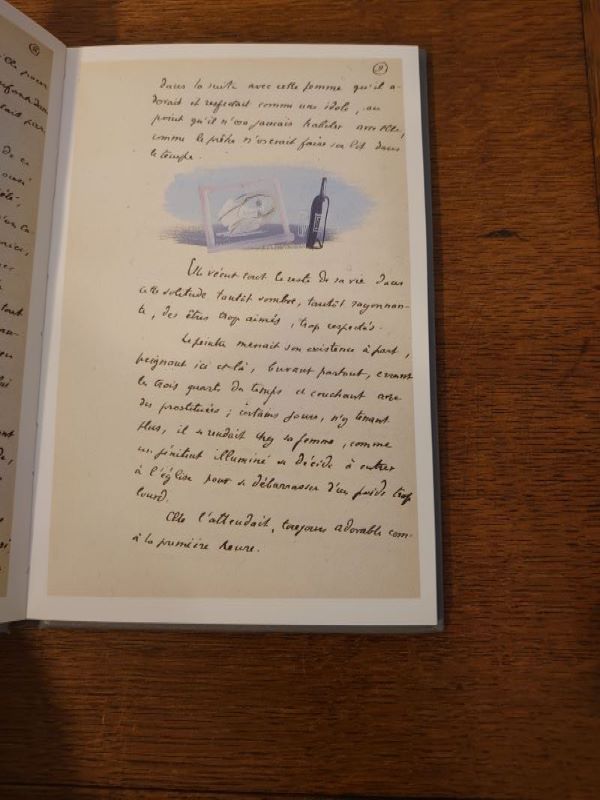 8
9
dans la suite avec cette femme qu'il a-
dorait et respectait comme une idole, au
point qu'il n'osa jamais habiter avec elle,
comme le prêtre n'oserait faire son lit dans
le temple.
Elle vécut tout le reste de sa vie dans
cette solitude tantôt sombre, tantôt rayonnan-
te, des êtres trop aimés, trop respectés.
Le peintre menait son existence à part,
peignant ici et là, buvant partout, errant
les trois quarts du temps et couchant avec
des prostituées ; certains jours, n'y tenant
plus, il se rendait chez sa femme, comme
un pénitent illuminé se décide à entrer
à l'église pour se débarrasser d'un poids trop
lourd.
Elle l'attendait, toujours adorable com-
à la première heure.